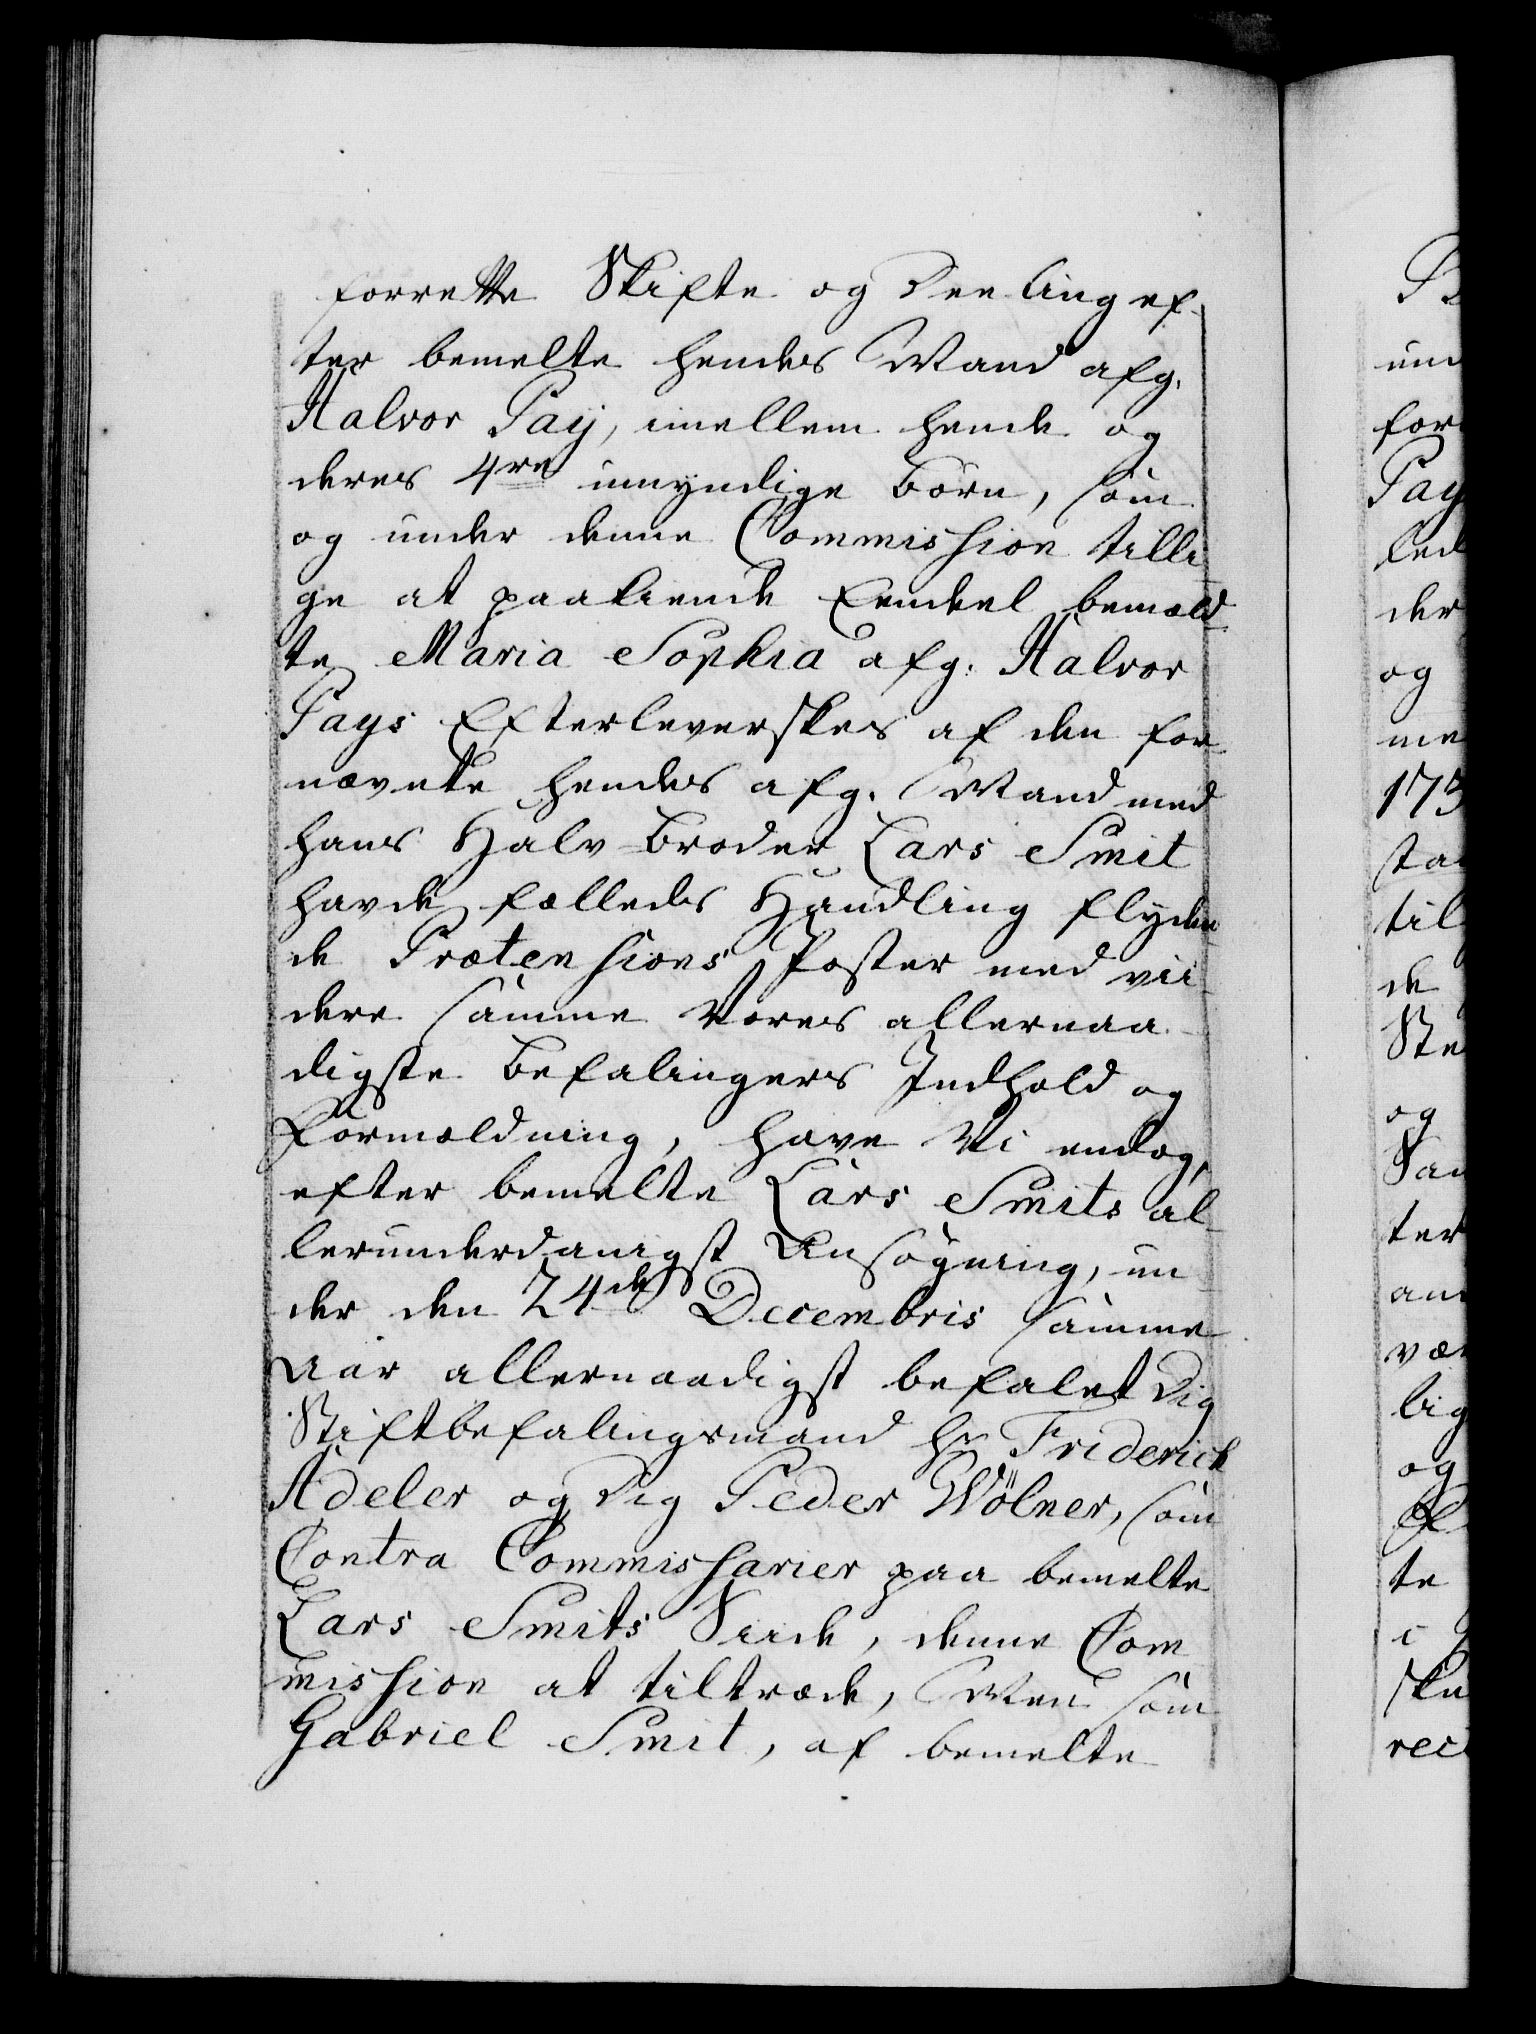 forrette Skifte og Deeling ef-
ter bemelte hendes Mand afg.
Halvor Pay, imellem hende og
deres 4re umyndige Børn, som
og under denne Commission tilli-
ge at paakiende Eendeel bemeld-
te Maria Sophia afg. Halvor
Pays Efterleverskes af den for
nævnte hendes afg. Mand med
hans Halv-Broder Lars Smit
havde fælleds Handling flyden-
de Prætensions Poster med vii-
dere samme Vores allernaa-
digste Befalingers Indhold og
Formeldning, have Vi endog,
efter bemelte Lars Smits al-
lerunderdanigst Ansøgning, un-
der den 24de Decembris samme
Aar allernaadigst befalet Dig
Stiftbefalingsmand Hr. Friderich
Adeler og Dig Peder Wölner, som
Contra Commissarier paa bemelte
Lars Smits Siide, denne Com
mission at tiltræde, Men som
Gabriel Smit, af bemelte
und
for
Pay
der
og
me
173
til
de
og
ter
vær
lig
og
te
rec